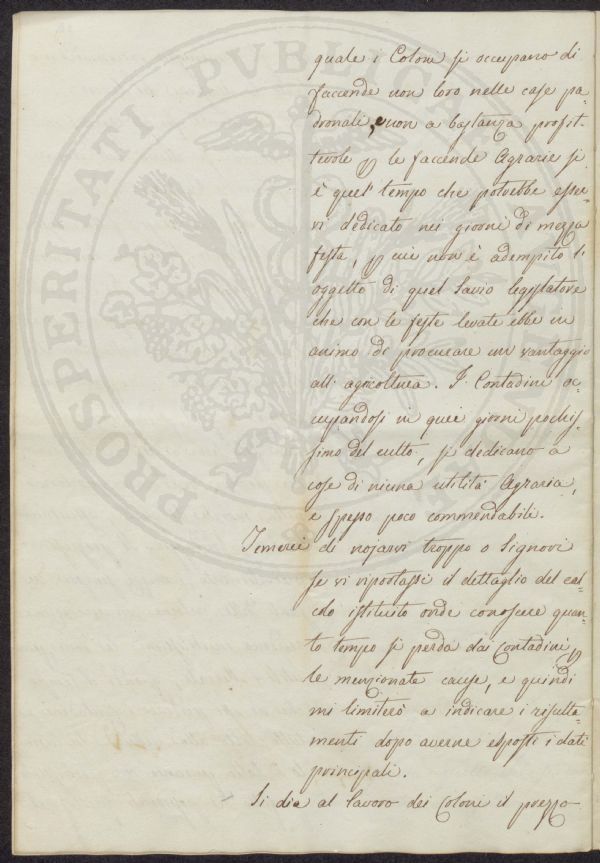 quale i Coloni si occupano di
faccende non loro nelle case pa-
dronali, e non a bastanza profit-
tevole p le faccende Agrarie si
è quel tempo che potrebbe esser
vi dedicato nei giorni di mezza
festa, p cui non è adempito l'
oggetto di quel Savio legislatore
che con le feste levate ebbe in
animo di procurare un vantaggio
all' agricoltura. I Contadini oc-
cupandosi in quei giorni pochis-
simo del culto, si dedicano a
cose di niuna utilità Agraria,
e spesso poco commendabili.
Temerei di nojarvi troppo o Signori
se vi riportassi il dettaglio del cal-
colo istituito onde conoscere quan-
to tempo si perda dai Contadini p
le menzionate cause, e quindi
mi limiterò a indicare i risulta-
menti dopo averne esposti i dati
principali.
Si dia al lavoro dei Coloni il prezzo
PROSPERITATI PUBLICAE